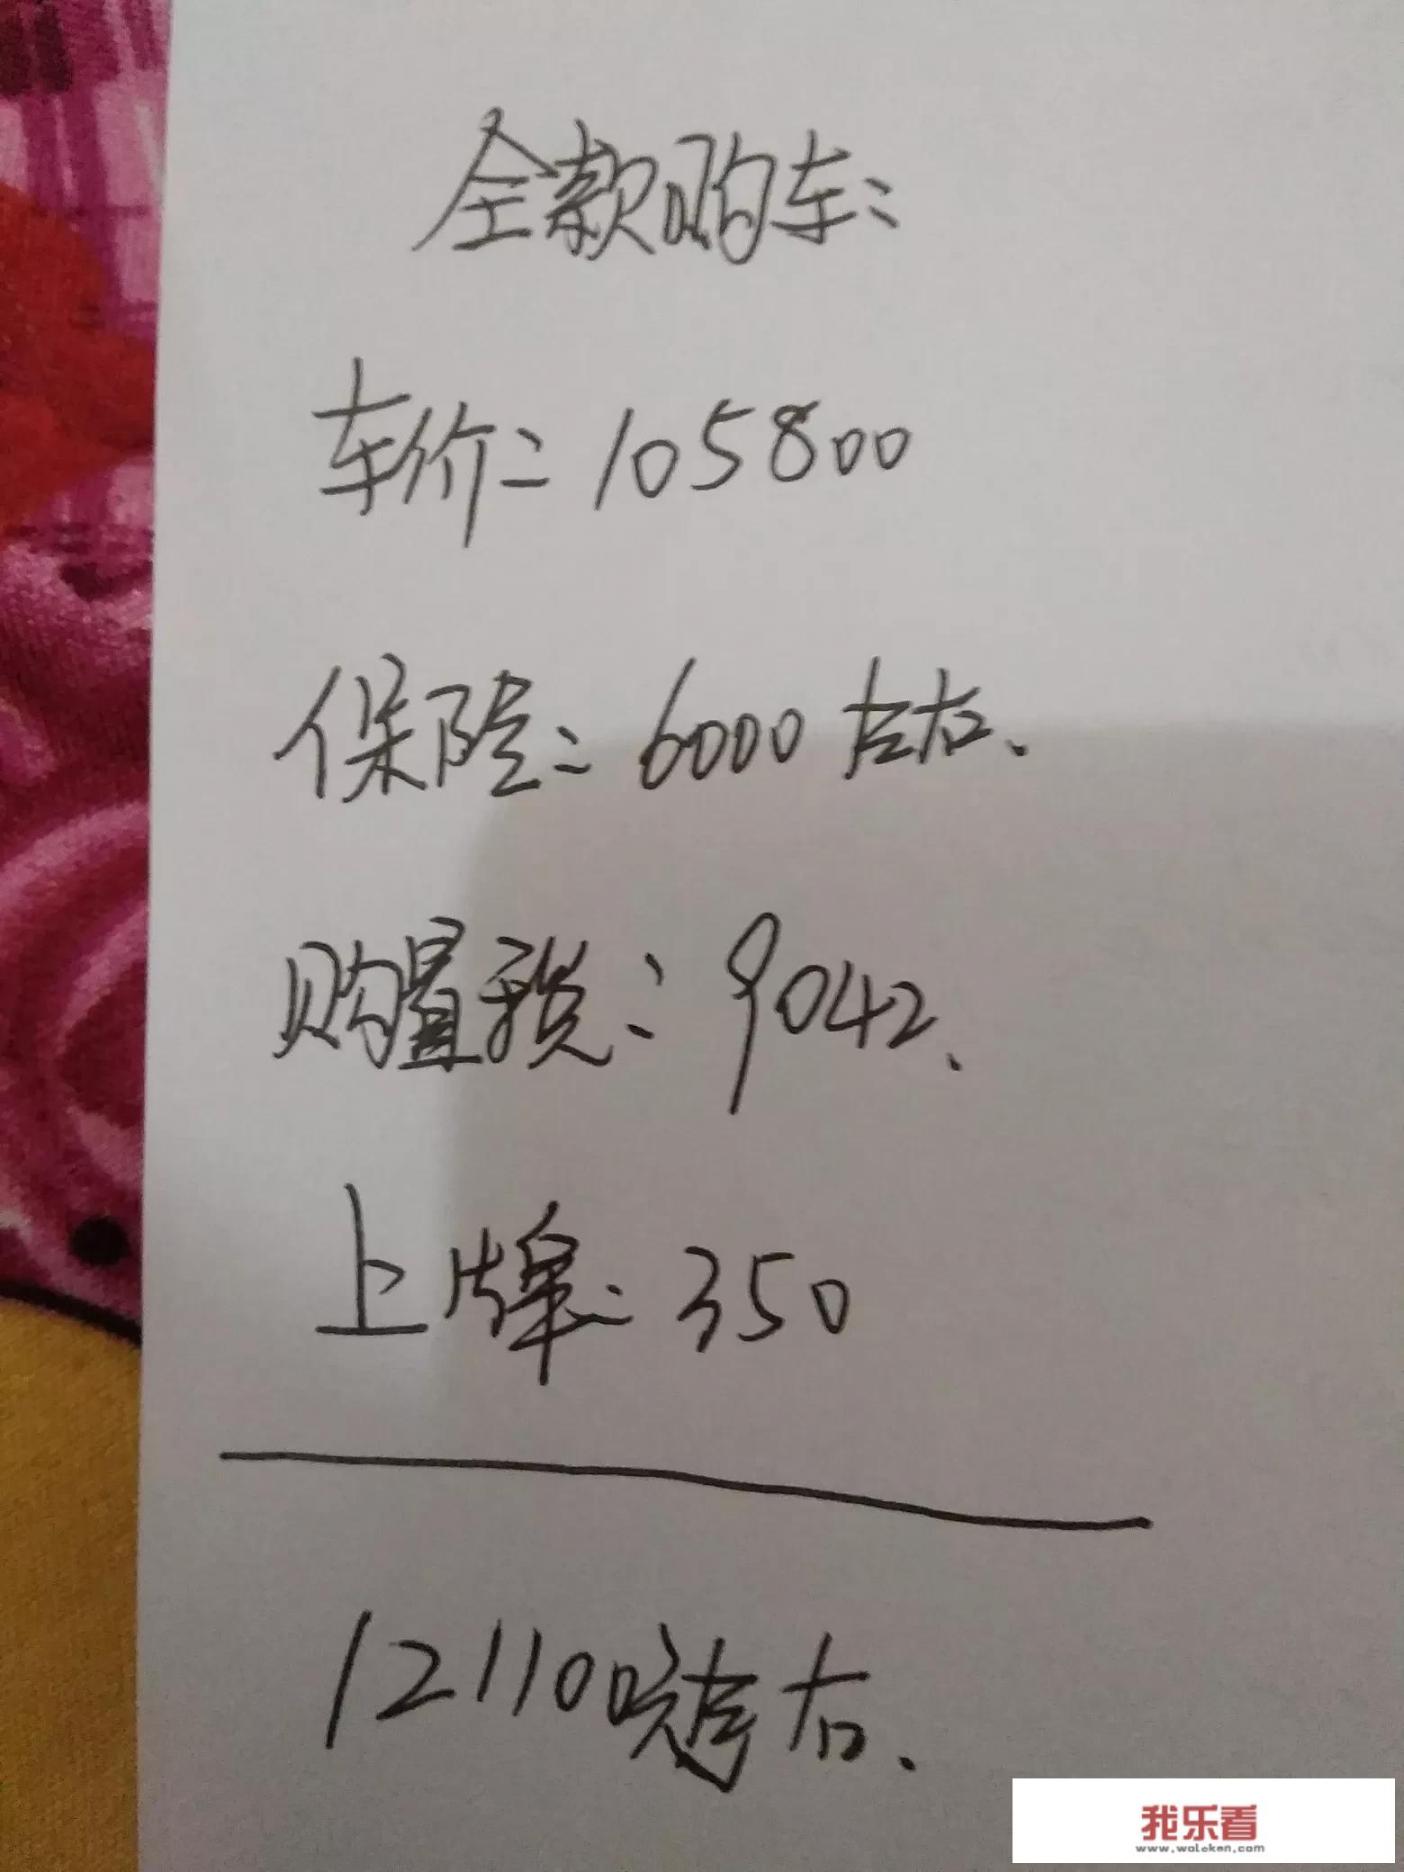 全款购车:
车价: 105800
保险: 6000左右.
购置税: 9042.
上牌: 350
121100左右.
我乐看
www.woleken.com